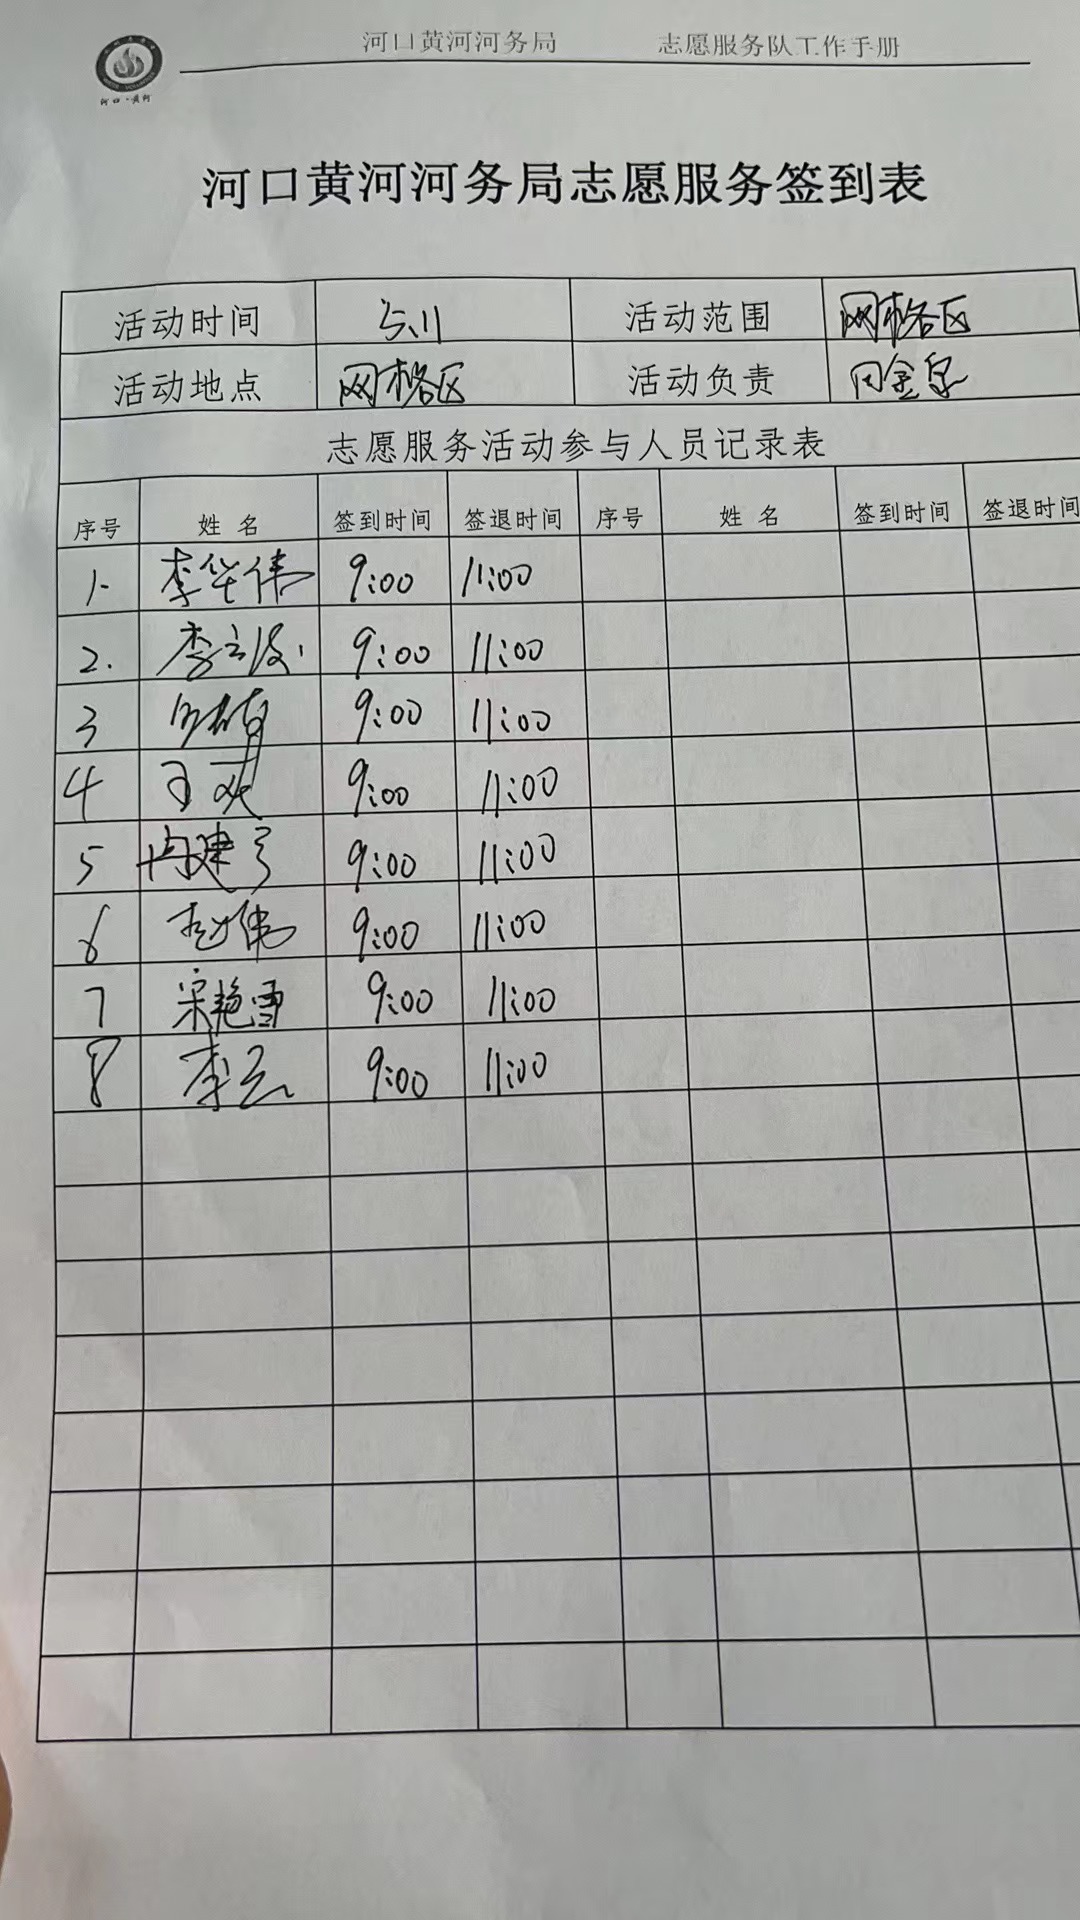 河口黄河河务局 志愿服务队工作手册
河口·黄河
河口黄河河务局志愿服务签到表
活动时间 5.11 活动范围 网格区
活动地点 网格区 活动负责
志愿服务活动参与人员记录表
序号 姓名 签到时间 签退时间 序号 姓名 签到时间 签退时间
1. 李华伟 9:00 11:00
2. 李立波 9:00 11:00
3 9:00 11:00
4 王爽 9:00 11:00
5 9:00 11:00
6 赵伟 9:00 11:00
7 宋艳雪 9:00 11:00
8 李云 9:00 11:00